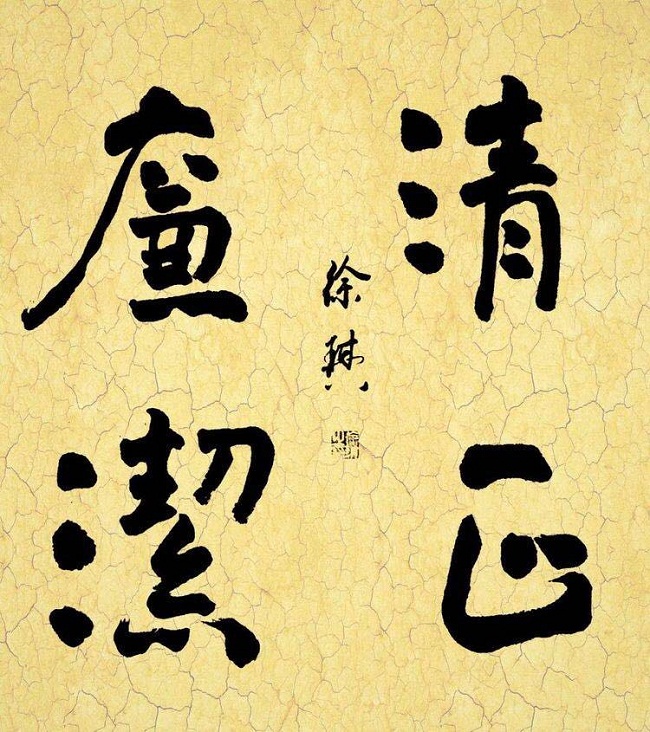 清正
廉潔
徐琪